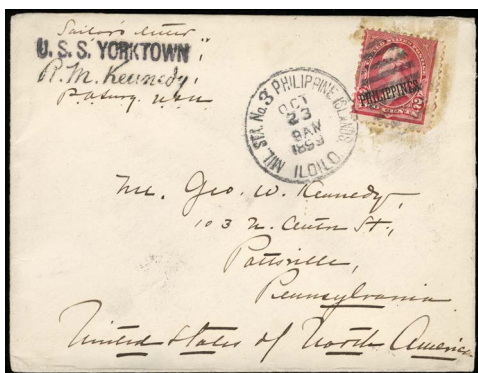 Sailor's letter
U.S.S. YORKTOWN
R. M. Kennedy,
MIL. STA. No. 3 PHILIPPINE ISLANDS.
OCT
23
8 AM
1899
ILOILO
PHILIPPINES
2
Mr. Geo. W. Kennedy,
103 N. Centre St.,
Pottsville,
Pennsylvania
United States of North America